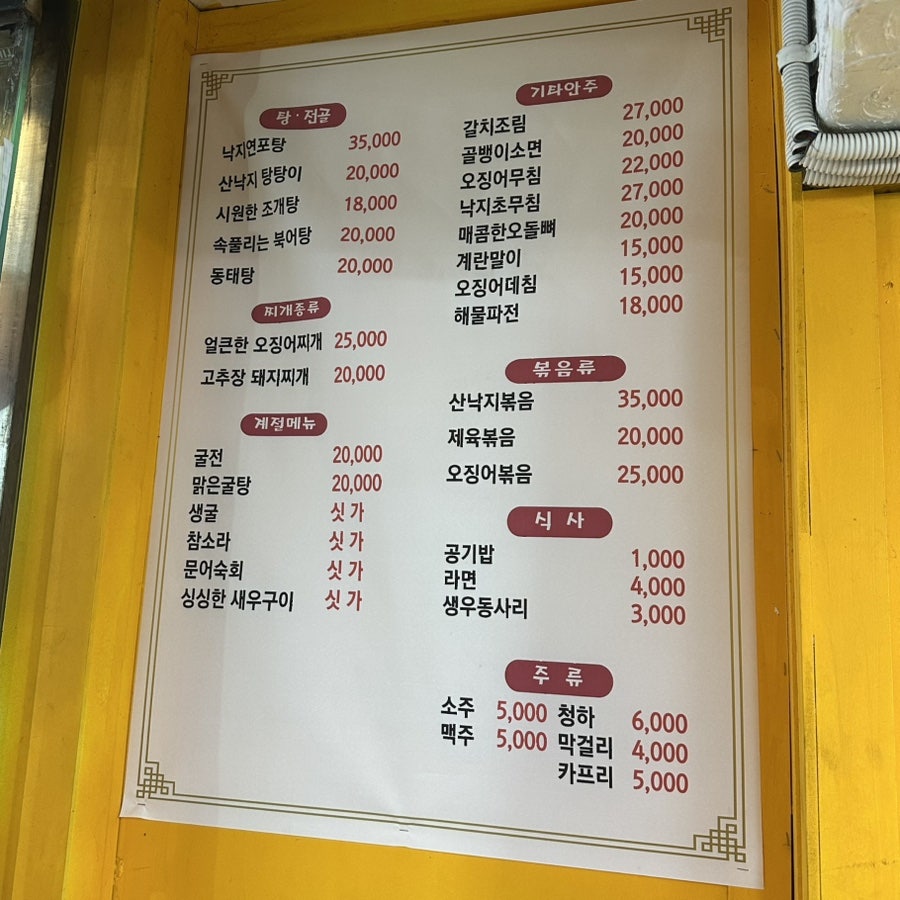 탕·전골
낙지연포탕 35,000
산낙지 탕탕이 20,000
시원한 조개탕 18,000
속풀리는 북어탕 20,000
동태탕 20,000
찌개종류
얼큰한 오징어찌개 25,000
고추장 돼지찌개 20,000
계절메뉴
굴전 20,000
맑은굴탕 20,000
생굴 싯가
참소라 싯가
문어숙회 싯가
싱싱한 새우구이 싯가
기타안주
갈치조림 27,000
골뱅이소면 20,000
오징어무침 22,000
낙지초무침 27,000
매콤한오돌뼈 20,000
계란말이 15,000
오징어데침 15,000
해물파전 18,000
볶음류
산낙지볶음 35,000
제육볶음 20,000
오징어볶음 25,000
식사
공기밥 1,000
라면 4,000
생우동사리 3,000
주류
소주 5,000 청하 6,000
맥주 5,000 막걸리 4,000
카프리 5,000